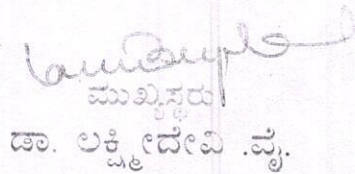 ಮುಖ್ಯಸ್ಥರು
ಡಾ. ಲಕ್ಷ್ಮೀದೇವಿ .ವೈ.